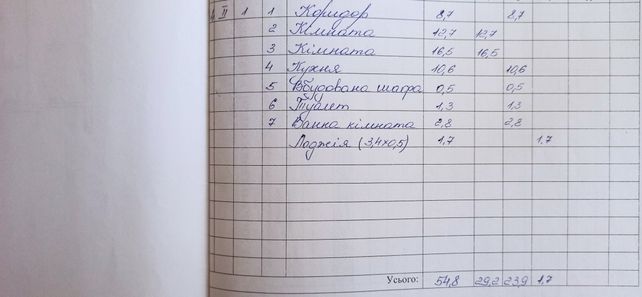 II 1 1 Коридор 8,7 8,7
2 Кімната 12,7 12,7
3 Кімната 16,5 16,5
4 Кухня 10,6 10,6
5 Вбудована шафа 0,5 0,5
6 Туалет 1,3 1,3
7 Ванна кімната 2,8 2,8
Лоджія (3,4х0,5) 1,7 1,7
Усього: 54,8 29,2 23,9 1,7